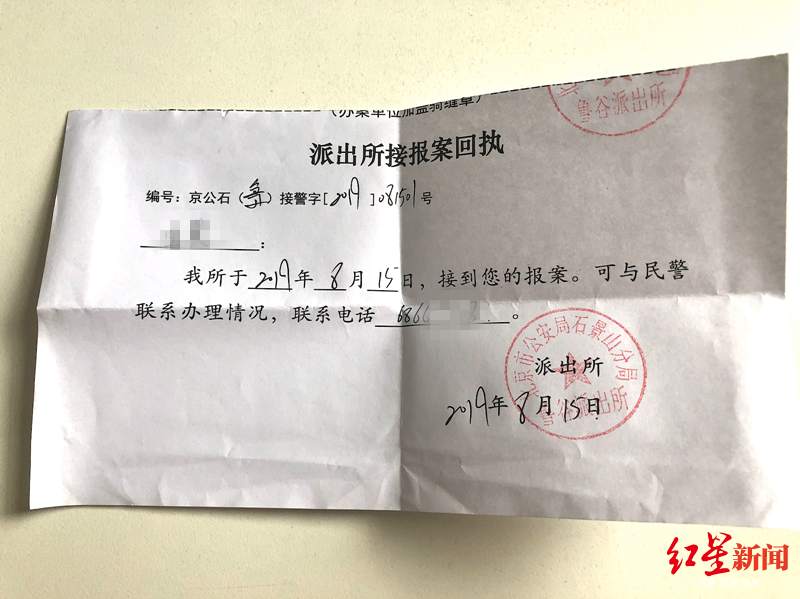 (办案单位加盖骑缝章)
鲁谷派出所
派出所接报案回执
编号：京公石（鲁）接警字[2019]081501号
：
我所于2019年8月15日，接到您的报案。可与民警
联系办理情况，联系电话686。
北京市公安局石景山分局
派出所
鲁谷派出所
2019年8月15日
红星新闻